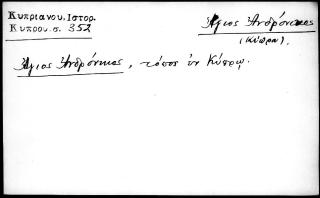 Κυπριανου. Ιστορ.
Κυπρου. σ. 352
Άγιος Ανδρόνικος
(Κύπρῳ).
Άγιος Ανδρόνικος, τόπος ἐν Κύπρῳ.